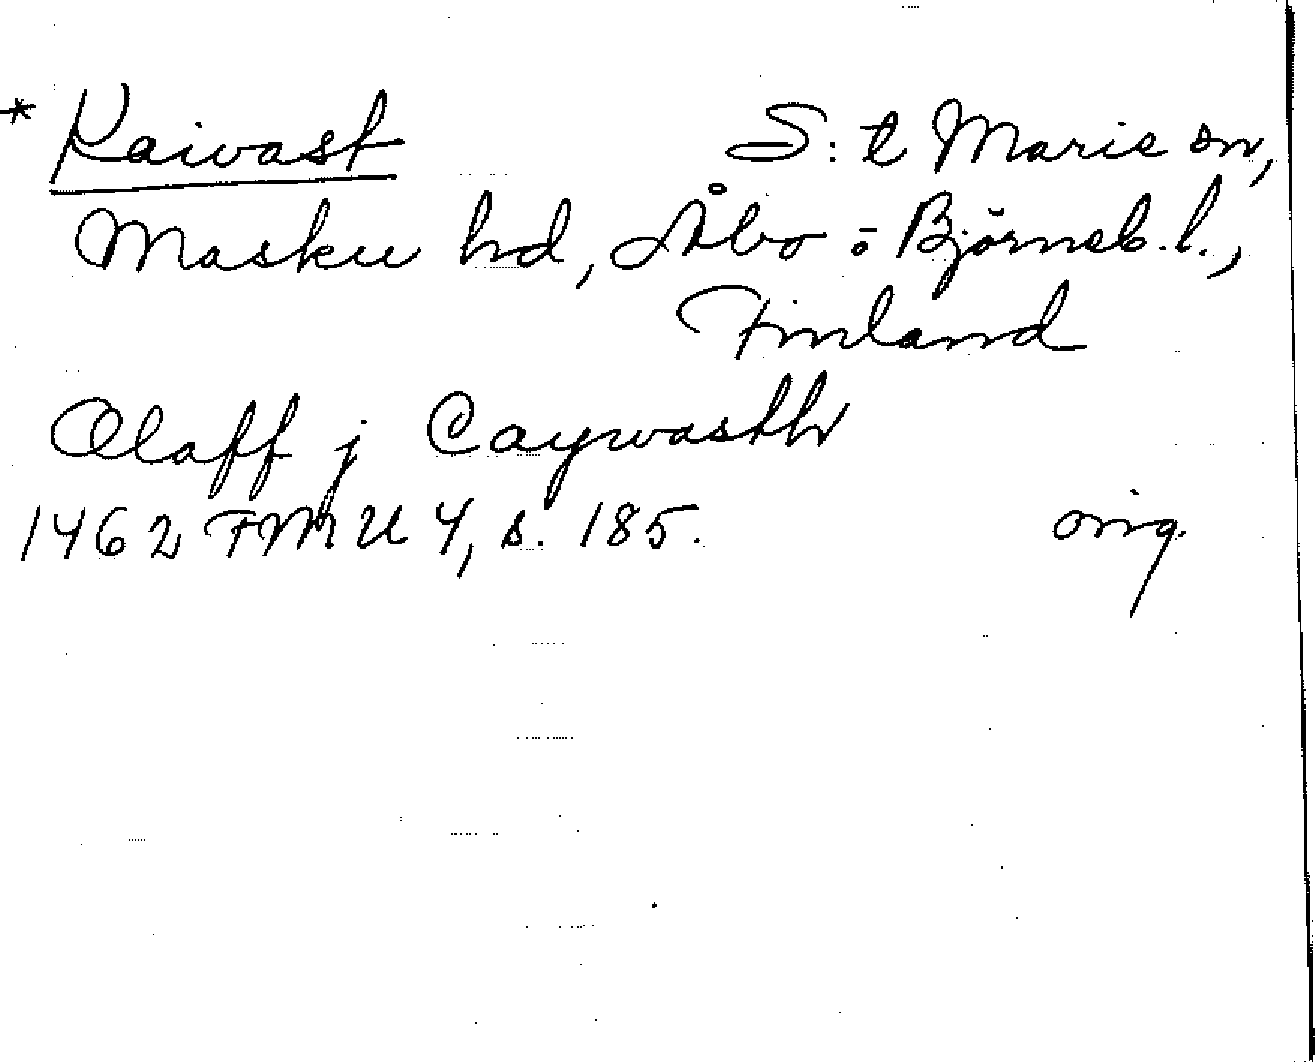 * Kaivast S:t Marie sn,
Masku hd, Åbo o Björneb. l.,
Finland
Olaff j Caywasth
1462 FMU 4, s. 185. orig.